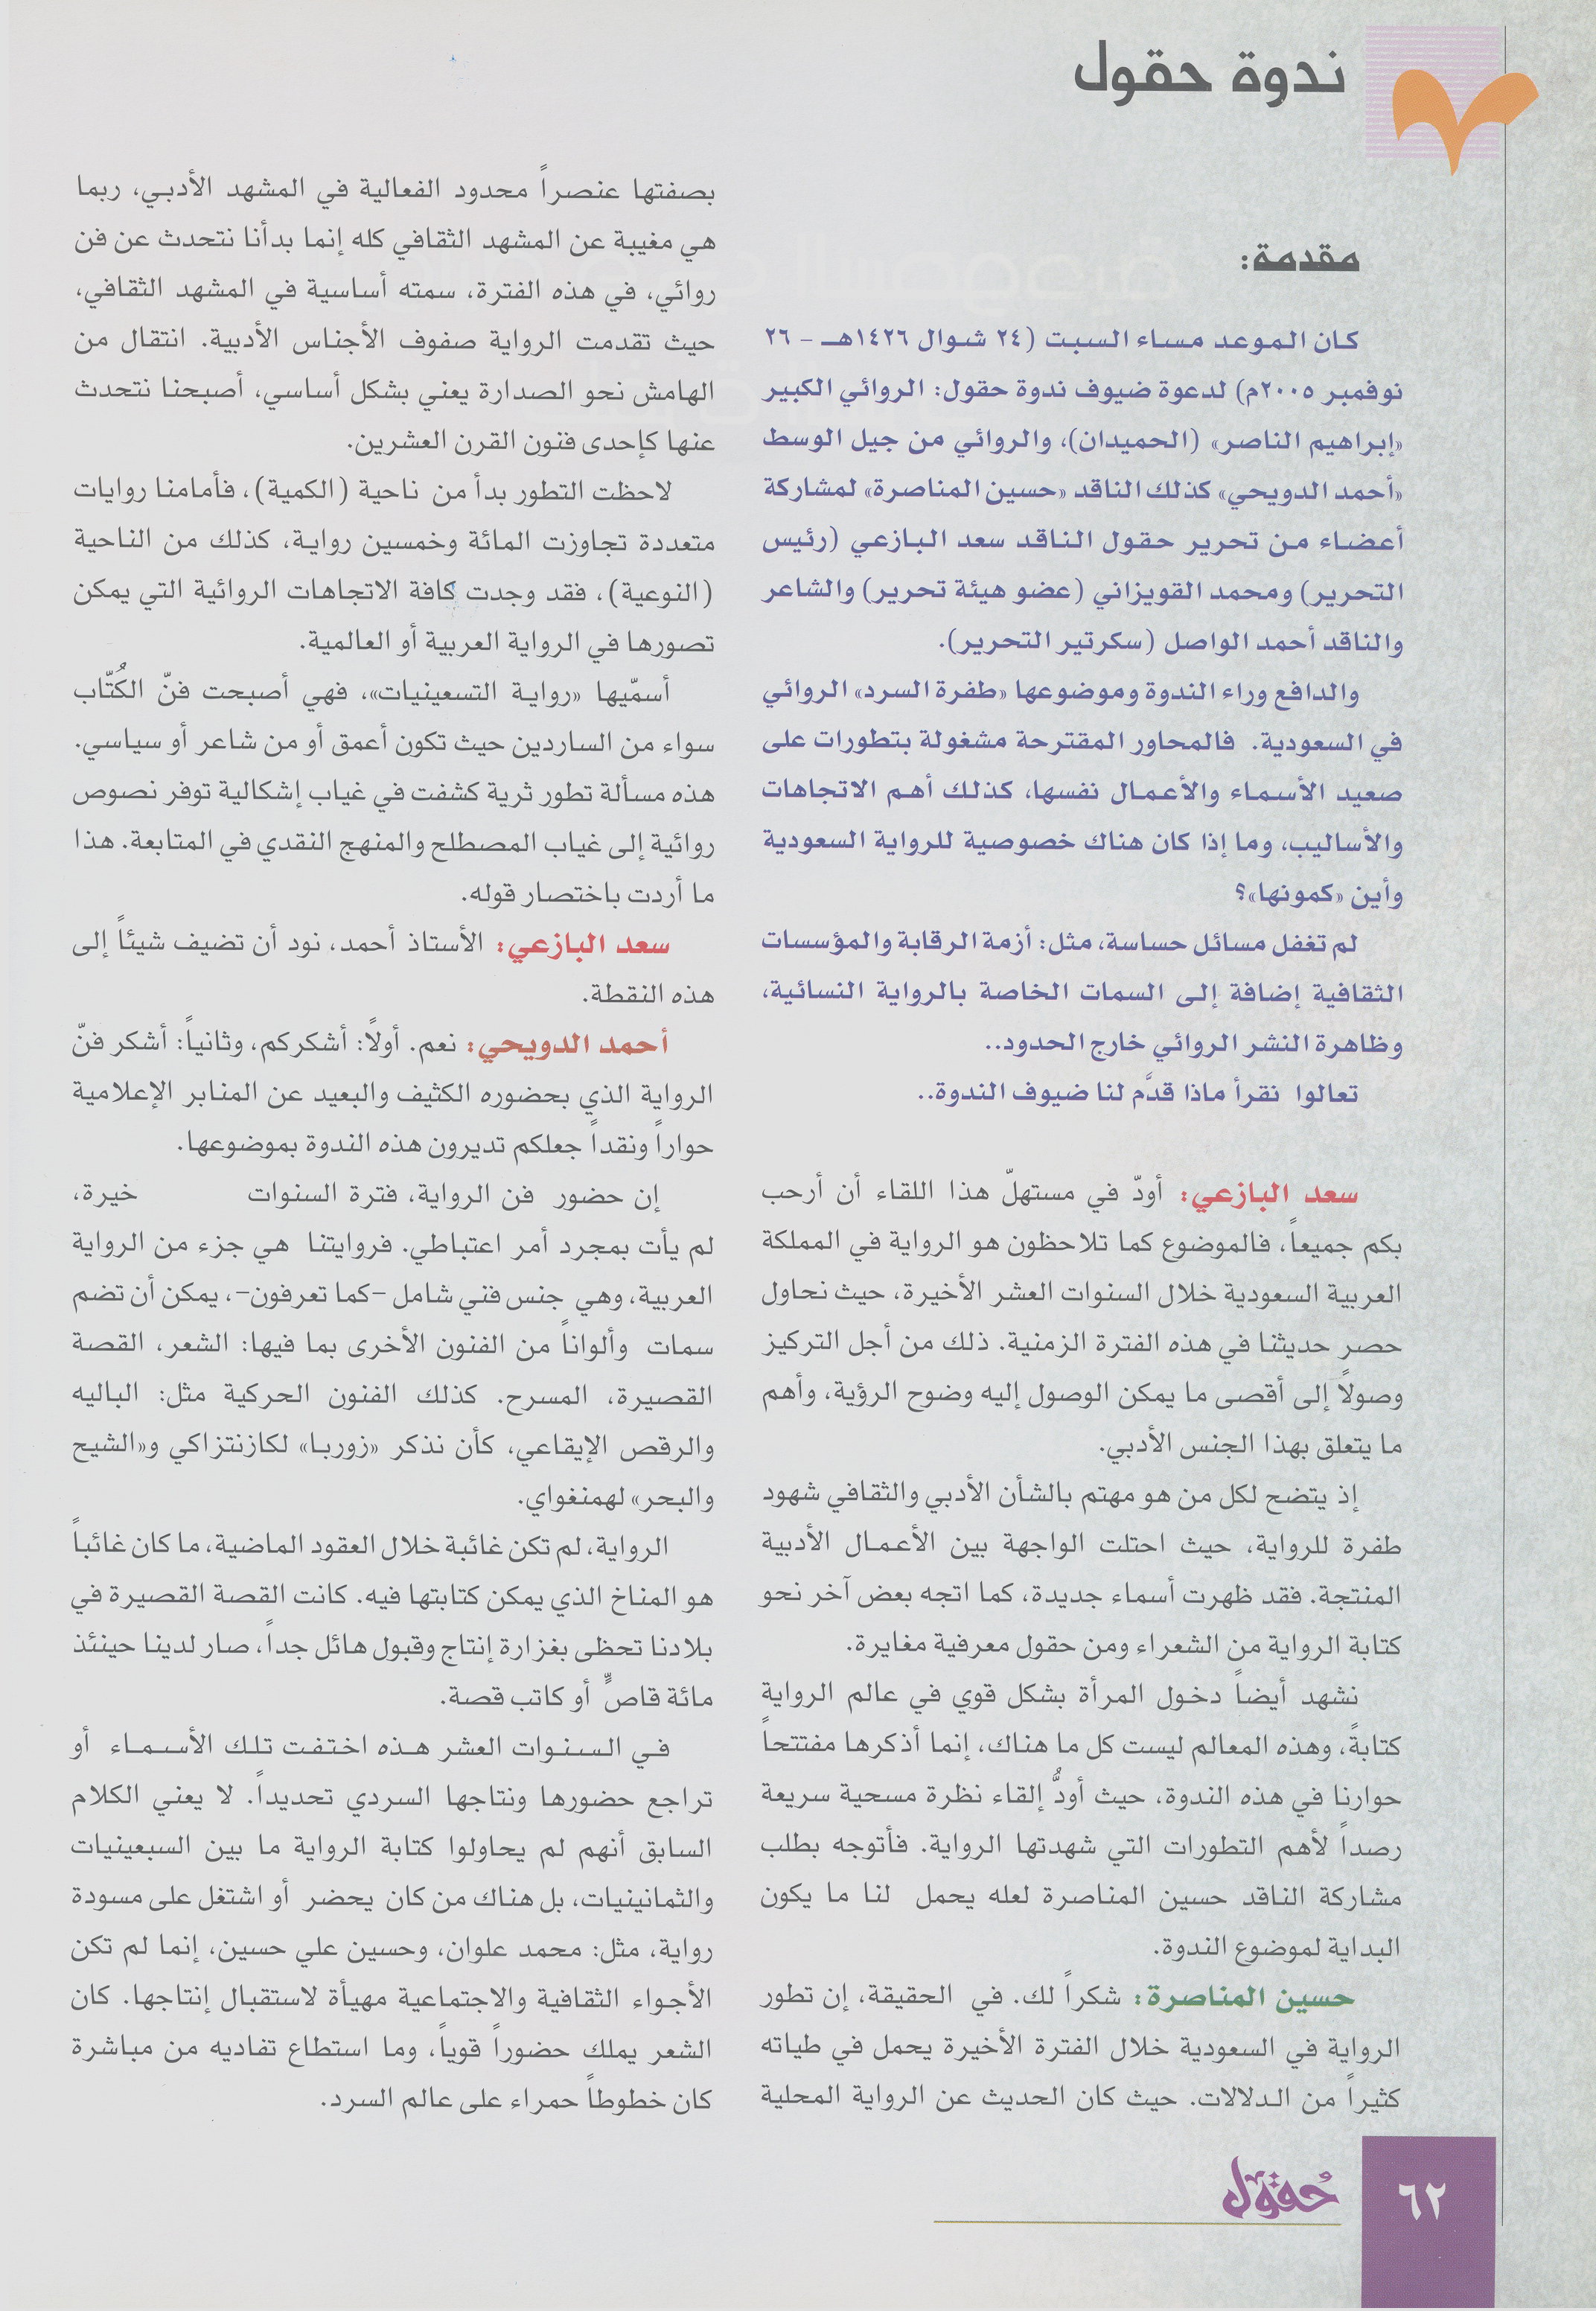 ندوة حقول
مقدمة:
كان الموعد مساء السبت (٢٤ شوال ١٤٢٦هـ - ٢٦
نوفمبر ٢٠٠٥م) لدعوة ضيوف ندوة حقول: الروائي الكبير
«إبراهيم الناصر» (الحميدان)، والروائي من جيل الوسط
«أحمد الدويحي» كذلك الناقد «حسين المناصرة» لمشاركة
أعضاء من تحرير حقول الناقد سعد البازعي (رئيس
التحرير) ومحمد القويزاني (عضو هيئة تحرير) والشاعر
والناقد أحمد الواصل (سكرتير التحرير).
والدافع وراء الندوة وموضوعها «طفرة السرد» الروائي
في السعودية. فالمحاور المقترحة مشغولة بتطورات على
صعيد الأسماء والأعمال نفسها، كذلك أهم الاتجاهات
والأساليب، وما إذا كان هناك خصوصية للرواية السعودية
وأين «كمونها»؟
لم تغفل مسائل حساسة، مثل: أزمة الرقابة والمؤسسات
الثقافية إضافة إلى السمات الخاصة بالرواية النسائية،
وظاهرة النشر الروائي خارج الحدود..
تعالوا نقرأ ماذا قدَّم لنا ضيوف الندوة..
سعد البازعي: أودّ في مستهلّ هذا اللقاء أن أرحب
بكم جميعاً، فالموضوع كما تلاحظون هو الرواية في المملكة
العربية السعودية خلال السنوات العشر الأخيرة، حيث نحاول
حصر حديثنا في هذه الفترة الزمنية. ذلك من أجل التركيز
وصولاً إلى أقصى ما يمكن الوصول إليه وضوح الرؤية، وأهم
ما يتعلق بهذا الجنس الأدبي.
إذ يتضح لكل من هو مهتم بالشأن الأدبي والثقافي شهود
طفرة للرواية، حيث احتلت الواجهة بين الأعمال الأدبية
المنتجة. فقد ظهرت أسماء جديدة، كما اتجه بعض آخر نحو
كتابة الرواية من الشعراء ومن حقول معرفية مغايرة.
نشهد أيضاً دخول المرأة بشكل قوي في عالم الرواية
كتابةً، وهذه المعالم ليست كل ما هناك، إنما أذكرها مفتتحاً
حوارنا في هذه الندوة، حيث أودُّ إلقاء نظرة مسحية سريعة
رصداً لأهم التطورات التي شهدتها الرواية. فأتوجه بطلب
مشاركة الناقد حسين المناصرة لعله يحمل لنا ما يكون
البداية لموضوع الندوة.
حسين المناصرة: شكراً لك. في الحقيقة، إن تطور
الرواية في السعودية خلال الفترة الأخيرة يحمل في طياته
كثيراً من الدلالات. حيث كان الحديث عن الرواية المحلية
بصفتها عنصراً محدود الفعالية في المشهد الأدبي، ربما
هي مغيبة عن المشهد الثقافي كله إنما بدأنا نتحدث عن فن
روائي، في هذه الفترة، سمته أساسية في المشهد الثقافي،
حيث تقدمت الرواية صفوف الأجناس الأدبية. انتقال من
الهامش نحو الصدارة يعني بشكل أساسي، أصبحنا نتحدث
عنها كإحدى فنون القرن العشرين.
لاحظت التطور بدأ من ناحية (الكمية)، فأمامنا روايات
متعددة تجاوزت المائة وخمسين رواية، كذلك من الناحية
(النوعية)، فقد وجدت كافة الاتجاهات الروائية التي يمكن
تصورها في الرواية العربية أو العالمية.
أسمّيها «رواية التسعينيات»، فهي أصبحت فنّ الكُتّاب
سواء من الساردين حيث تكون أعمق أو من شاعر أو سياسي.
هذه مسألة تطور ثرية كشفت في غياب إشكالية توفر نصوص
روائية إلى غياب المصطلح والمنهج النقدي في المتابعة. هذا
ما أردت باختصار قوله.
سعد البازعي: الأستاذ أحمد، نود أن تضيف شيئاً إلى
هذه النقطة.
أحمد الدويحي: نعم. أولاً: أشكركم، وثانياً: أشكر فنّ
الرواية الذي بحضوره الكثيف والبعيد عن المنابر الإعلامية
حواراً ونقداً جعلكم تديرون هذه الندوة بموضوعها.
إن حضور فن الرواية، فترة السنوات خيرة،
لم يأت بمجرد أمر اعتباطي. فروايتنا هي جزء من الرواية
العربية، وهي جنس فني شامل -كما تعرفون-، يمكن أن تضم
سمات وألواناً من الفنون الأخرى بما فيها: الشعر، القصة
القصيرة، المسرح. كذلك الفنون الحركية مثل: الباليه
والرقص الإيقاعي، كأن نذكر «زوربا» لكازنتزاكي و«الشيح
والبحر» لهمنغواي.
الرواية، لم تكن غائبة خلال العقود الماضية، ما كان غائباً
هو المناخ الذي يمكن كتابتها فيه. كانت القصة القصيرة في
بلادنا تحظى بغزارة إنتاج وقبول هائل جداً، صار لدينا حينئذ
مائة قاصٍّ أو كاتب قصة.
في السنوات العشر هذه اختفت تلك الأسماء أو
تراجع حضورها ونتاجها السردي تحديداً. لا يعني الكلام
السابق أنهم لم يحاولوا كتابة الرواية ما بين السبعينيات
والثمانينيات، بل هناك من كان يحضر أو اشتغل على مسودة
رواية، مثل: محمد علوان، وحسين علي حسين، إنما لم تكن
الأجواء الثقافية والاجتماعية مهيأة لاستقبال إنتاجها. كان
الشعر يملك حضوراً قوياً، وما استطاع تفاديه من مباشرة
كان خطوطاً حمراء على عالم السرد.
حُقول
٦٢